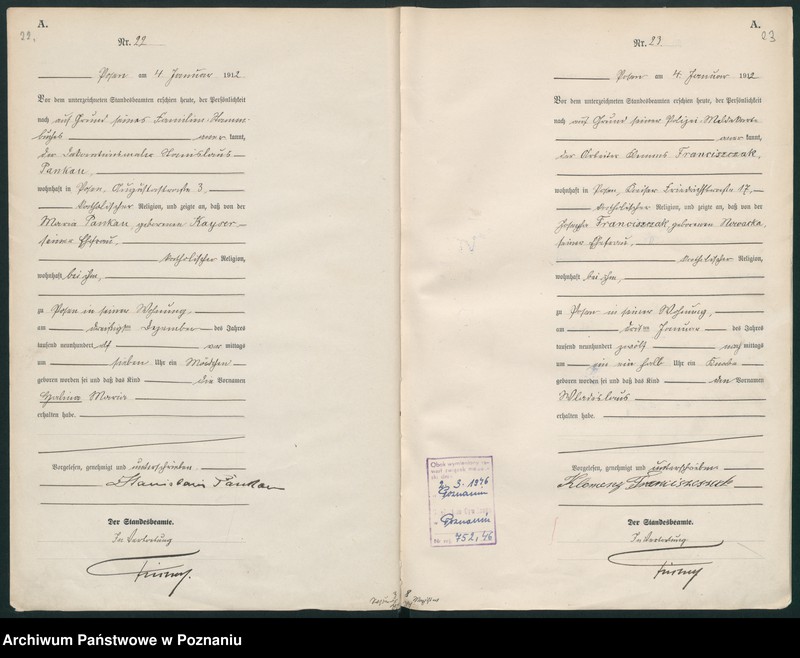 A.
22.
Nr. 22
Posen am 4. Januar 1912
Vor dem unterzeichneten Standesbeamten erschien heute, der Persönlichkeit
nach auf Grund seines Familien-Stamm-
buches anerkannt,
der Dekorationsmaler Stanislaus
Pankau,
wohnhaft in Posen, Augustastraße 3,
katholischer Religion, und zeigte an, daß von der
Maria Pankau, geborenen Kayser
seiner Ehefrau,
katholischer Religion,
wohnhaft bei ihm,
zu Posen in seiner Wohnung
am dreißigsten Dezember des Jahres
tausend neunhundert elf vormittags
um sieben Uhr ein Mädchen
geboren worden sei und daß das Kind die Vornamen
Halina Maria
erhalten habe.
Vorgelesen, genehmigt und unterschrieben
Stanislaus Pankau
Der Standesbeamte.
In Vertretung
A.
23
Nr. 23.
Posen am 4. Januar 1912
Vor dem unterzeichneten Standesbeamten erschien heute, der Persönlichkeit
nach auf Grund seiner Polizei-Meldekarte
anerkannt,
der Arbeiter Klemens Franciszczak,
wohnhaft in Posen, Kaiser Friedrichstraße 17,
katholischer Religion, und zeigte an, daß von der
Josepha Franciszczak, geborenen Nowacka,
seiner Ehefrau,
katholischer Religion,
wohnhaft bei ihm,
zu Posen in seiner Wohnung,
am dritten Januar des Jahres
tausend neunhundert zwölf nachmittags
um ein ein halb Uhr ein Knabe
geboren worden sei und daß das Kind den Vornamen
Wladislaus
erhalten habe.
Vorgelesen, genehmigt und unterschrieben
Klemens Franciszczak
Der Standesbeamte.
In Vertretung
2. 3. 1946
Poznaniu
Poznaniu
Nr 752/46
Archiwum Państwowe w Poznaniu